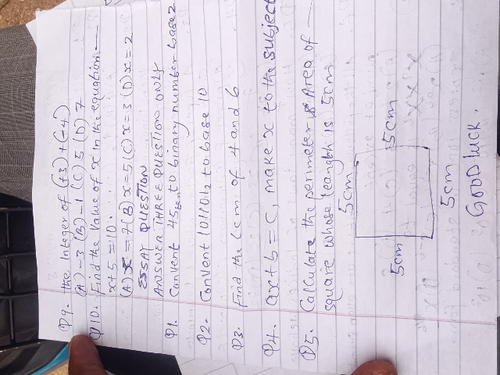 Q9. the integer of (+3) + (-4)
(A) -3 (B) -1 (C) 5 (D) 7
Q10. Find the value of x in the equation
x+5=10.
(A) x = 7 (B) x=5 (C) x=3 (D) x=2
ESSAY QUESTION
ANSWER THREE QUESTION ONLY
Q1. Convent 45ten to binary number base 2
Q2. Convent 10110₂ to base 10
Q3. Find the Lcm of 4 and 6
Q4. ax+b = c, make x to the subject
Q5. Calculate the perimeter & Area of
square whose leangth is 5cm
5cm
5cm
5cm
5cm
GOOD LUCK.